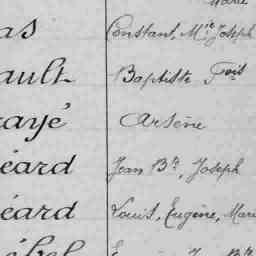 Marie
as Constant, M.ie Joseph
ault Baptiste Fois
rayé Arsène
éard Jean Bte, Joseph
éard Louis, Eugène, Mari